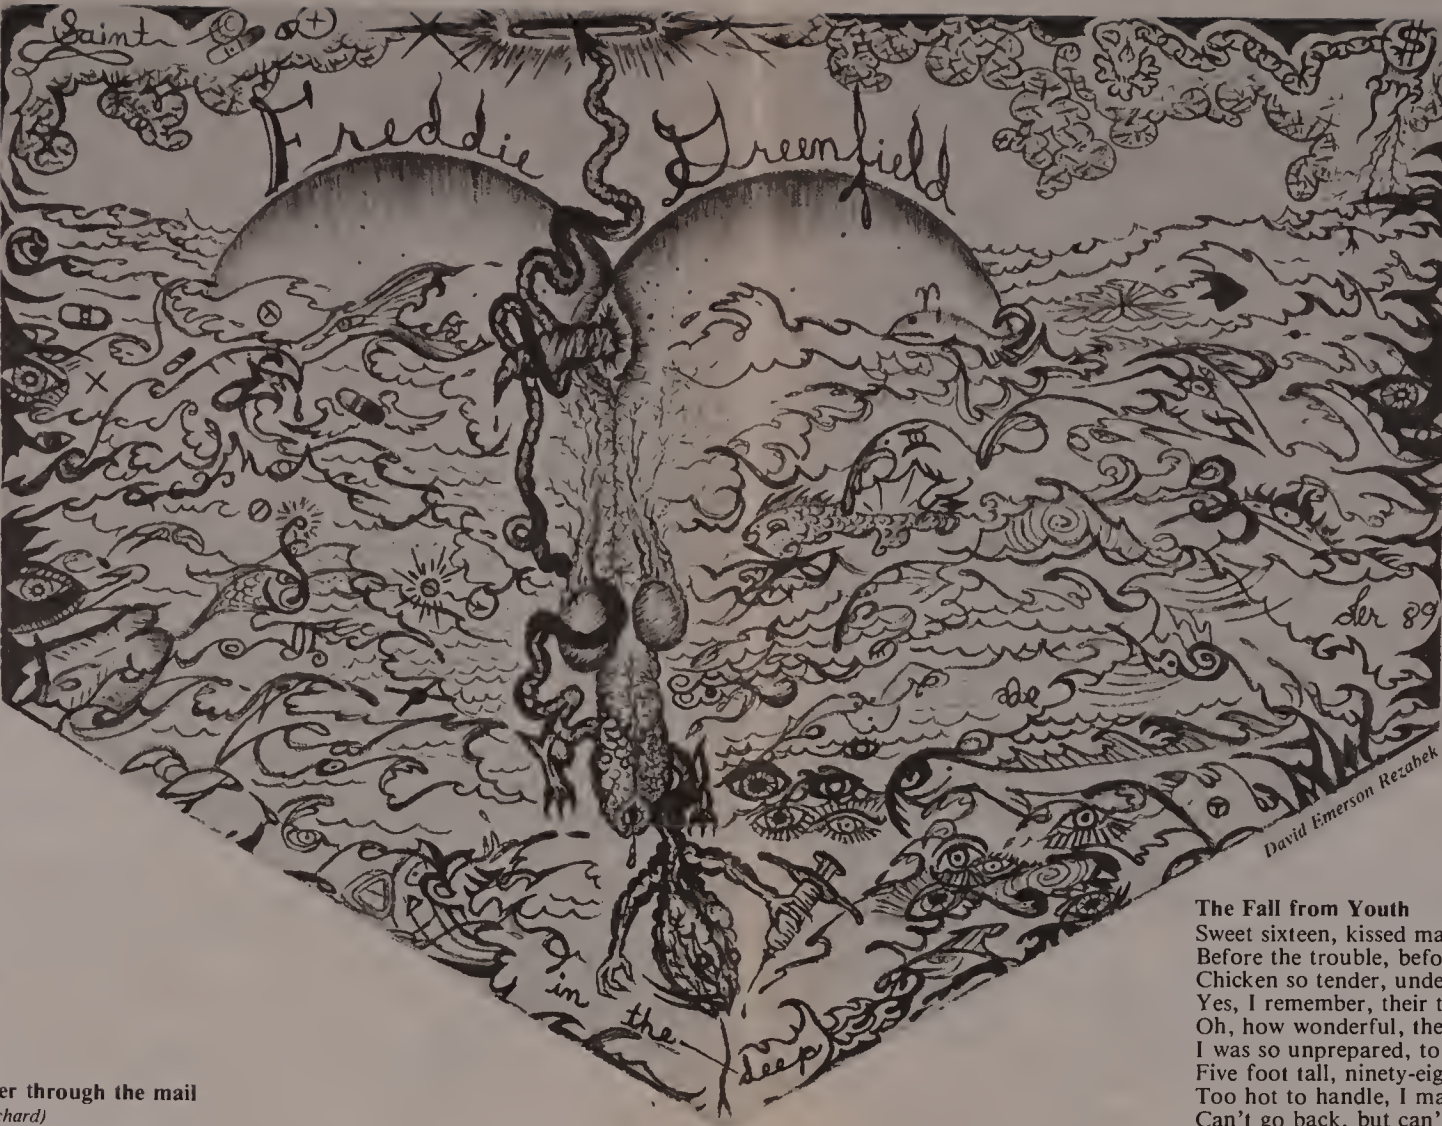 Saint
$
Freddie Greenfield
Not
Ser 89
be
David Emerson Rezabek
in the
deep
The Fall from Youth
Sweet sixteen, kissed ma
Before the trouble, befo
Chicken so tender, unde
Yes, I remember, their t
Oh, how wonderful, the
I was so unprepared, to
Five foot tall, ninety-eig
Too hot to handle, I ma
Can't go back, but can'
er through the mail
chard)